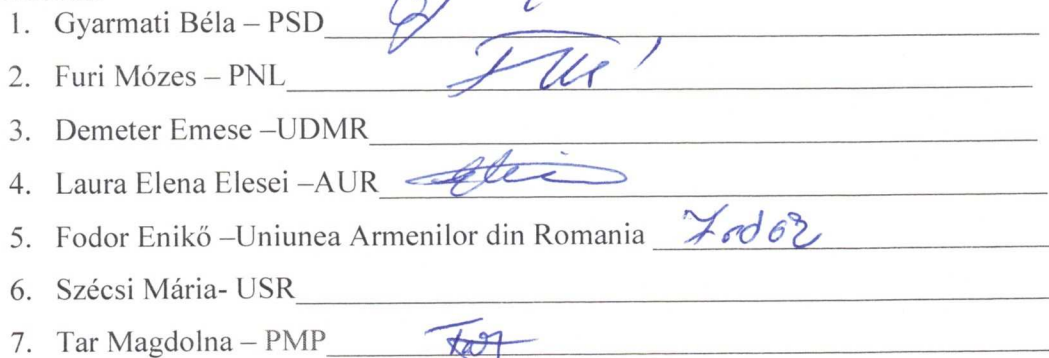 1. Gyarmati Béla – PSD
2. Furi Mózes – PNL
3. Demeter Emese –UDMR
4. Laura Elena Elesei –AUR
5. Fodor Enikő –Uniunea Armenilor din Romania
6. Szécsi Mária- USR
7. Tar Magdolna – PMP